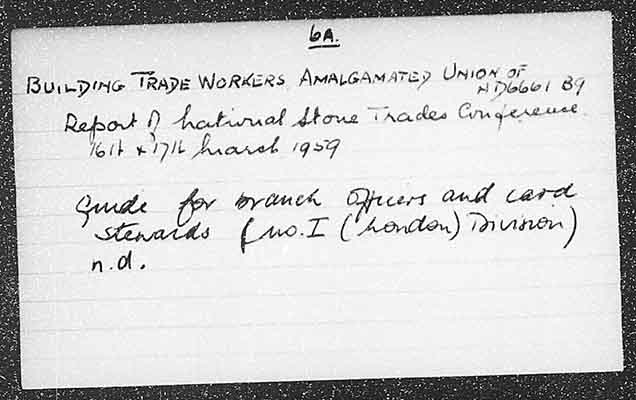 6A.
BUILDING TRADE WORKERS, AMALGAMATED UNION OF
HD6661 B9
Report of National Stone Trades Conference
16th & 17th March 1959
Guide for branch officers and card
stewards (no. I (London) Division)
n.d.